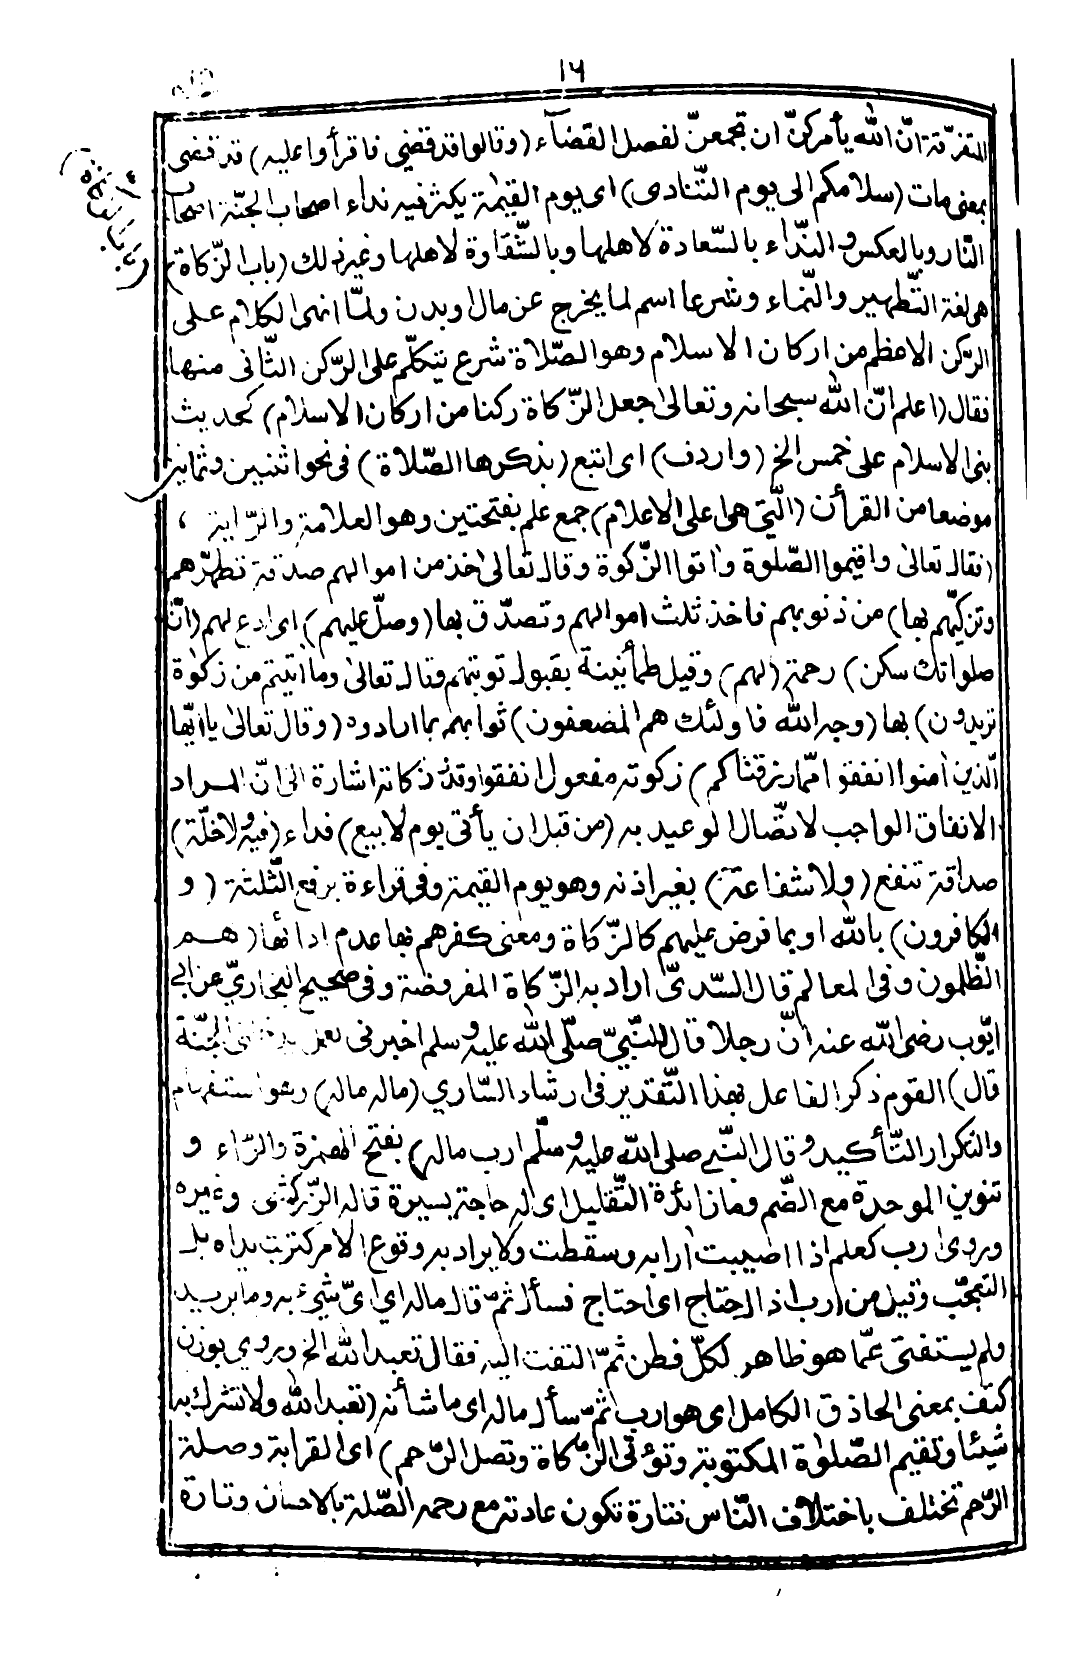 ١٦
المتفرّقة انّ الله يأمركنّ ان تجمعنّ لفصل القضآء (وقالوا قد قضي فاقرأوا عليه) قد قضى
بمعنى مات (سلامكم الى يوم التّنادى) اى يوم القيمة يكثر فيه نداء اصحاب الجنّة اصحاب
النّار وبالعكس والنّداء بالسّعادة لاهلها وبالشّقاوة لاهلها وغير ذلك (باب الزّكاة)
باب الزكاة
هى لغة التّطهير والنّماء وشرعا اسم لما يخرج عن مال او بدن ولمّا انهى الكلام على
الرّكن الاعظم من اركان الاسلام وهو الصّلاة شرع يتكلّم على الرّكن الثّانى منها
فقال (اعلم انّ الله سبحانه وتعالى جعل الزّكاة ركنا من اركان الاسلام) كحديث
بنى الاسلام على خمس الخ (واردف) اى اتبع (بذكرها الصّلاة) فى نحو اثنين وثمانين
موضعا من القرأن (الّتى هى اعلى الاعلام) جمع علم بفتحتين وهو العلامة والرّاية ،
(فقال تعالى واقيموا الصّلوة واتوا الزّكوة وقال تعالى خذ من اموالهم صدقة تطهّرهم
وتزكّيهم بها) من ذنوبهم فاخذ ثلث اموالهم وتصدّق بها (وصلّ عليهم) اى ادع لهم (انّ
صلواتك سكن) رحمة (لهم) وقيل طمأنينة بقبول توبتهم وقال تعالى وما اتيتم من زكوة
تريدون) بها (وجه الله فاولئك هم المضعفون) ثوابهم بما ارادوه (وقال تعالى يا ايّها
الّذين امنوا انفقوا ممّا رزقناكم) زكوته مفعول انفقوا وقدّر زكاته اشارة الى انّ المراد
الانفاق الواجب لاتّصال الوعيد به (من قبل ان يأتى يوم لا بيع) فداء (فيه ولا خلّة)
صداقة تنفع (ولا شفاعة) بغير اذنه وهو يوم القيمة وفى قراءة برفع الثّلثة (و
الكافرون) بالله او بما فرض عليهم كالزّكاة ومعنى كفرهم بها عدم ادائها (هم
الظّلمون وفى المعالم قال السّدىّ اراد به الزّكاة المفروضة وفى صحيح البخاريّ عن ابى
ايّوب رضى الله عنه انّ رجلا قال للنّبيّ صلّى الله عليه وسلم اخبرنى بعمل يدخلنى الجنّة
قال) القوم ذكر الفاعل بهذا التّقدير فى ارشاد السّاري (ماله ماله) وهو استفهام
والتكرار للتّأكيد وقال النّبي صلى الله عليه وسلّم ارب ماله) بفتح الهمزة والرّاء و
تنوين الموحدة مع الضّم وما زائدة للتّقليل اى له حاجة يسيرة قاله الزّركشى وغيره
وروى ارب كعلم اذا اصيبت ارابه وسقطت ولا يراد به وقوع الامر كتربت يداه بل
التعجّب وقيل من ارب اذا احتاج اى احتاج فسأل ثمّ قال ماله اى اىّ شيء به وما يريد
ولم يستفتى عمّا هو ظاهر لكلّ فطن ثمّ التفت اليه فقال تعبد الله الخ وروي بوزن
كتف بمعنى الحاذق الكامل اى هو ارب ثمّ سأل ماله اى ما شأنه (تعبد الله ولا تشرك به
شيئا وتقيم الصّلوة المكتوبة وتؤتى الزّكاة وتصل الرّحم) اى القرابة وصلة
الرّحم تختلف باختلاف النّاس فتارة تكون عادته مع رحمه الصّلة بالاحسان وتارة